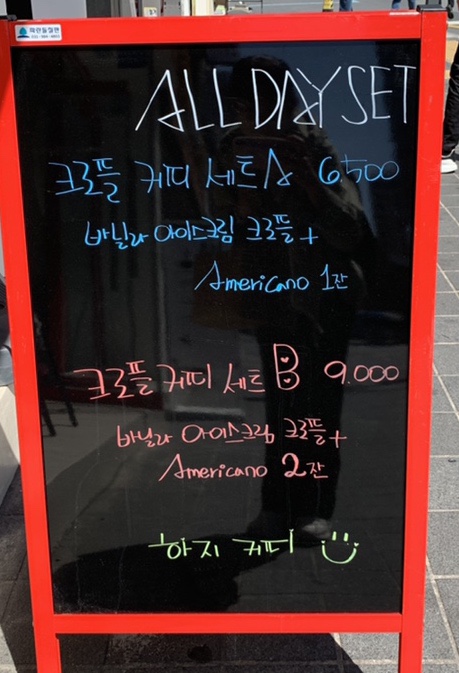 ALL DAY SET
크로플 커피 세트 A 6500
바닐라 아이스크림 크로플 +
Americano 1잔
크로플 커피 세트 B 9.000
바닐라 아이스크림 크로플 +
Americano 2잔
하지 커피